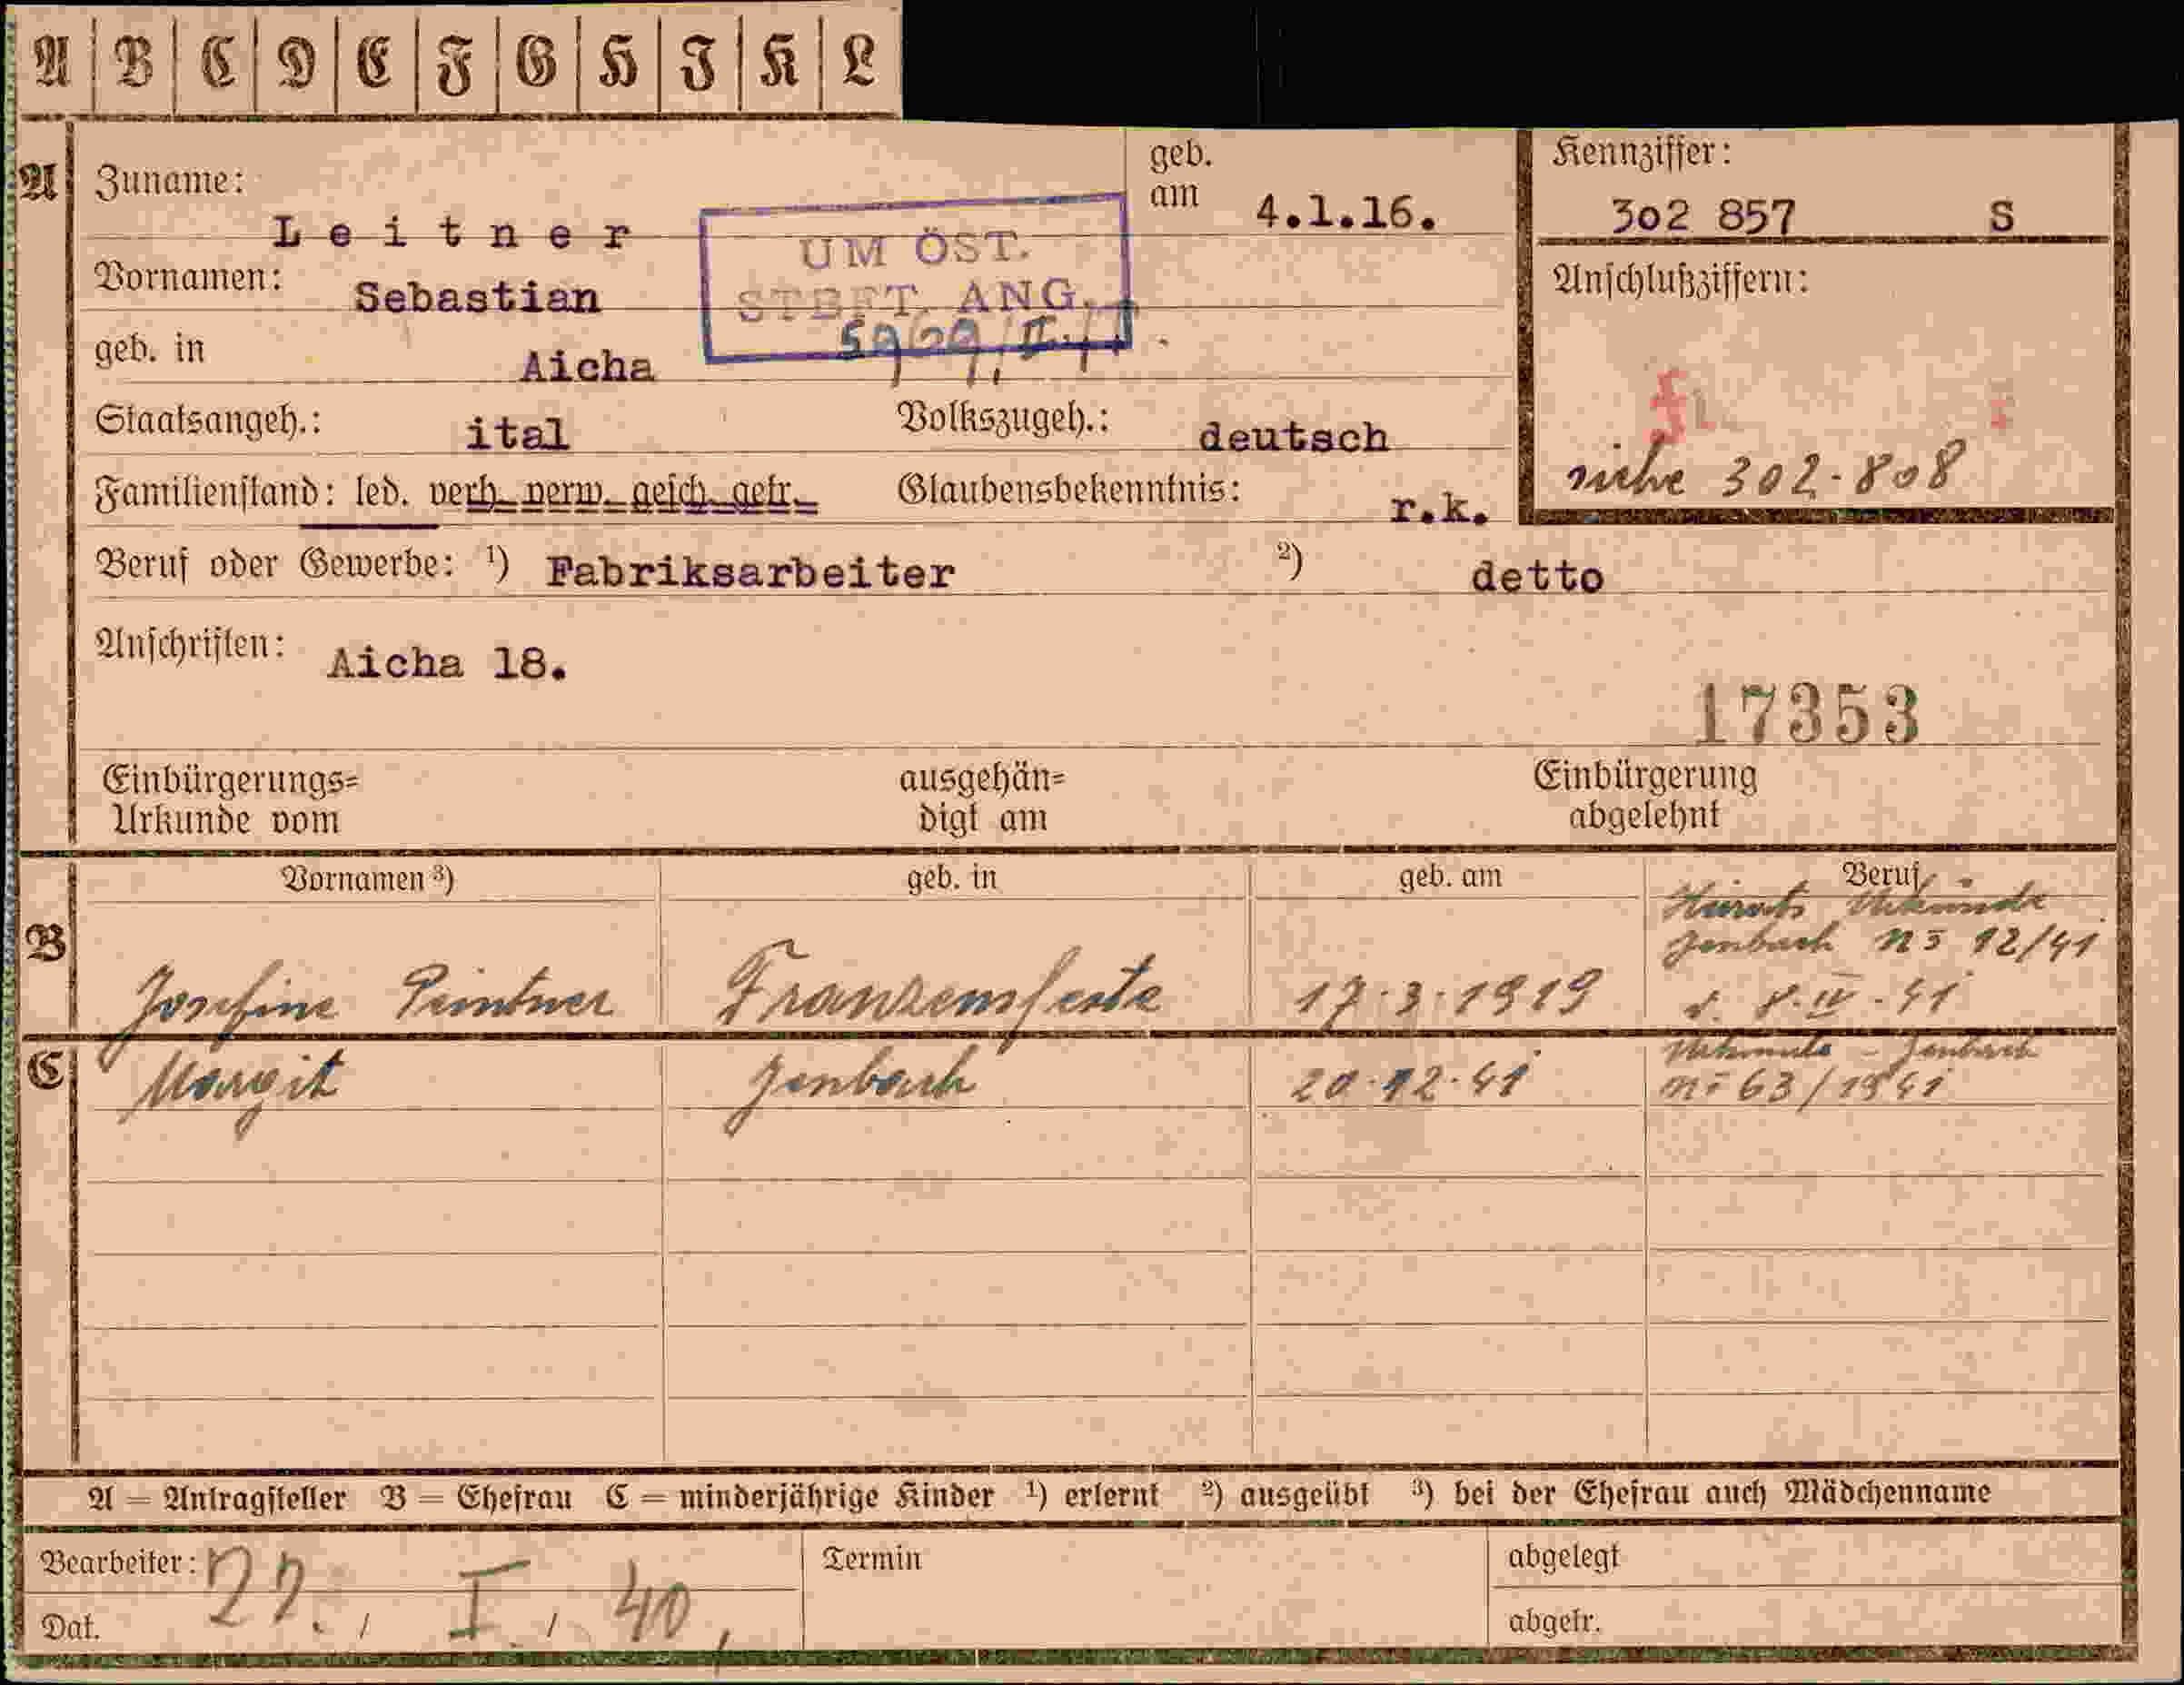 A B C D E F G H I K L
A Zuname: geb. am 4.1.16. Kennziffer:
Leitner 302 857 S
UM ÖST.
STBFT. ANG.
Vornamen: Sebastian Anschlußziffern:
geb. in Aicha
Staatsangeh.: ital Volkszugeh.: deutsch
siehe 302-808
Familienstand: led. verh. verw. gesch. getr. Glaubensbekenntnis: r.k.
Beruf oder Gewerbe: 1) Fabriksarbeiter 2) detto
Anschriften: Aicha 18.
17353
Einbürgerungs= ausgehän= Einbürgerung
Urkunde vom digt am abgelehnt
Vornamen 3) geb. in geb. am Beruf
Heirats Urkunde
B Jenbach No 12/41
Josefine Peintner Franzensfeste 17.3.1919 v. 8.IV.41
C Margit Jenbach 20.12.41 Urkunde - Jenbach
No 63/1941
A = Antragsteller B = Ehefrau C = minderjährige Kinder 1) erlernt 2) ausgeübt 3) bei der Ehefrau auch Mädchenname
Bearbeiter: Termin abgelegt
Dat. 22. / I. / 40, abgetr.